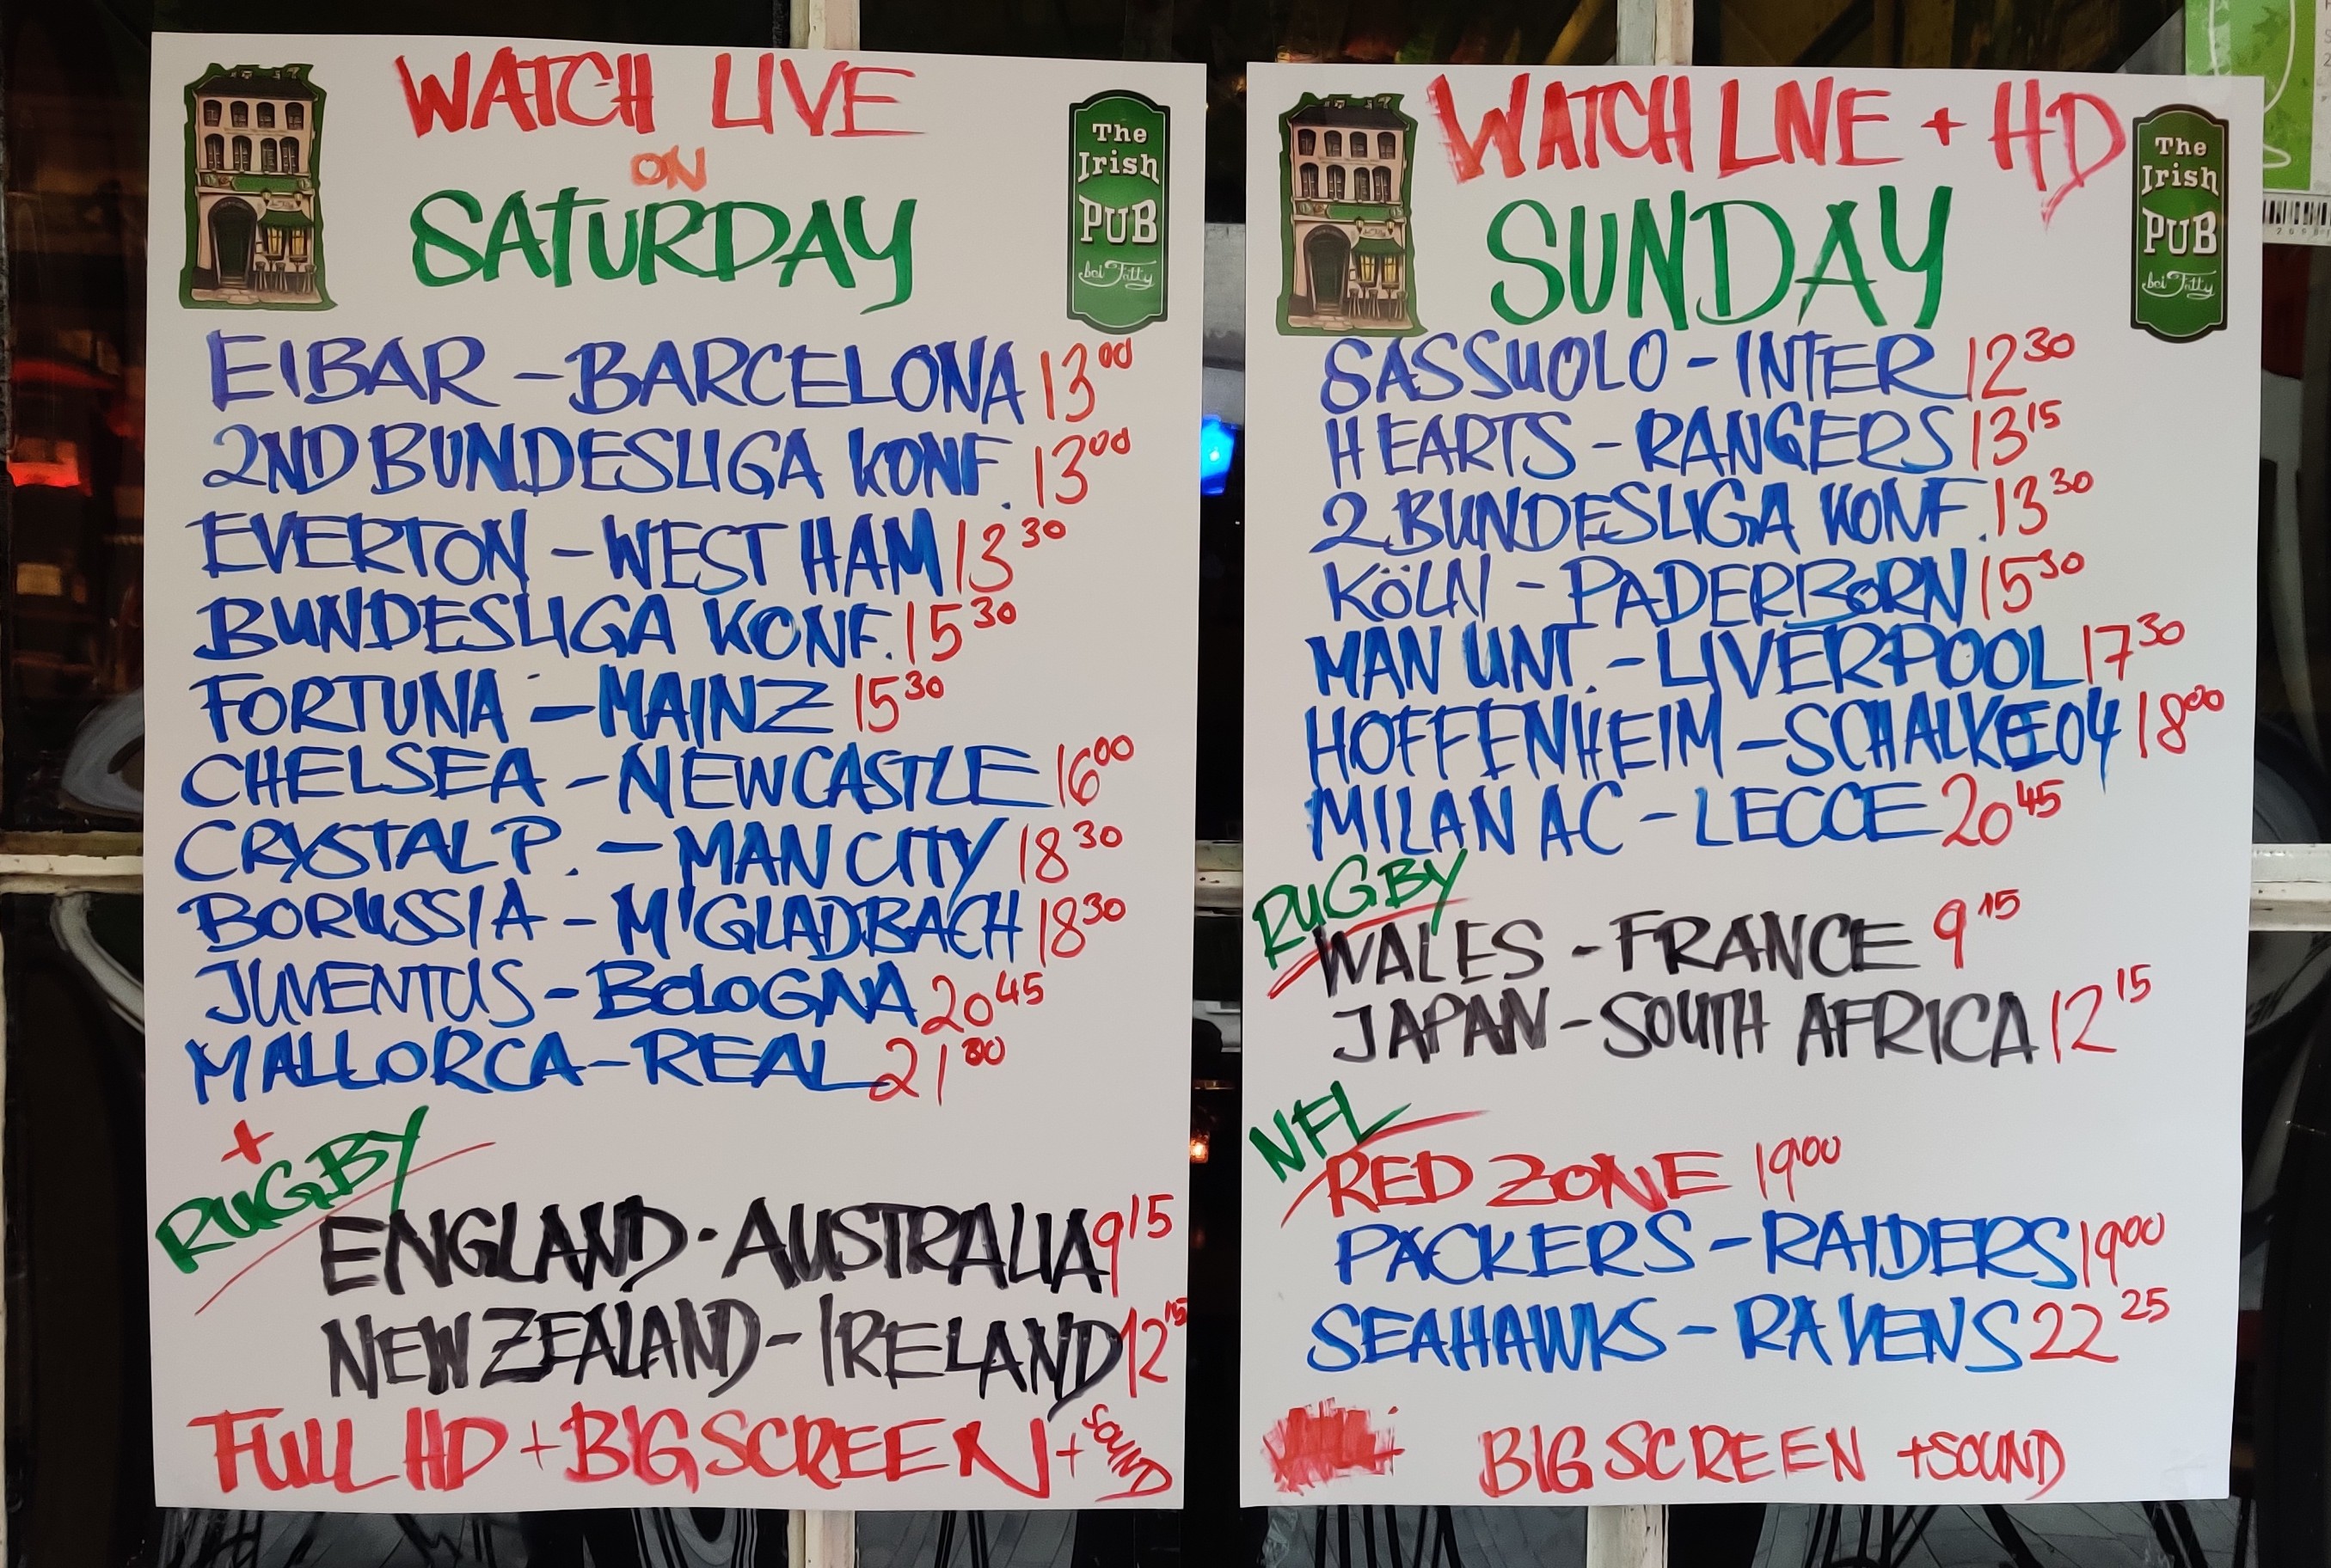 WATCH LIVE
ON
SATURDAY
The
Irish
PUB
bei Fatty
EIBAR - BARCELONA 13 00
2ND BUNDESLIGA KONF. 13 00
EVERTON - WEST HAM 13 30
BUNDESLIGA KONF. 15 30
FORTUNA - MAINZ 15 30
CHELSEA - NEWCASTLE 16 00
CRYSTAL P. - MAN CITY 18 30
BORUSSIA - M'GLADBACH 18 30
JUVENTUS - BOLOGNA 20 45
MALLORCA - REAL 21 00
+
RUGBY
ENGLAND - AUSTRALIA 9 15
NEW ZEALAND - IRELAND 12 15
FULL HD + BIG SCREEN + SOUND
WATCH LIVE + HD
SUNDAY
The
Irish
PUB
bei Fatty
SASSUOLO - INTER 12 30
HEARTS - RANGERS 13 15
2 BUNDESLIGA KONF. 13 30
KÖLN - PADERBORN 15 30
MAN UNT. - LIVERPOOL 17 30
HOFFENHEIM - SCHALKE 04 18 00
MILAN AC - LECCE 20 45
RUGBY
WALES - FRANCE 9 15
JAPAN - SOUTH AFRICA 12 15
NFL
RED ZONE 19 00
PACKERS - RAIDERS 19 00
SEAHAWKS - RAVENS 22 25
BIG SCREEN + SOUND